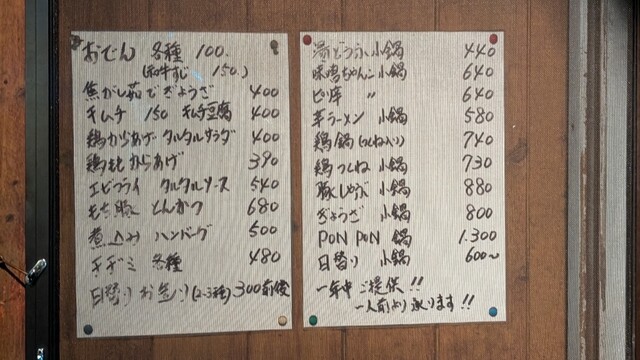 おでん 各種 100.
(和牛すじ 150.)
焦がし茹でぎょうざ 400
キムチ 150 キムチ豆腐 400
鶏からあげ タルタルサラダ 400
鶏ももからあげ 390
エビフライ タルタルソース 540
もち豚 とんかつ 680
煮込み ハンバーグ 500
チヂミ 各種 480
日替り お造り(2~3種) 300前後
湯どうふ 小鍋 440
味噌ちゃんこ 小鍋 640
ピリ辛 〃 640
辛ラーメン 小鍋 580
鶏鍋(つくね入り) 740
鶏つくね 小鍋 730
豚しゃぶ 小鍋 880
ぎょうざ 小鍋 800
PON PON 鍋 1.300
日替り 小鍋 600~
一年中ご提供!!
一人前より承ります!!